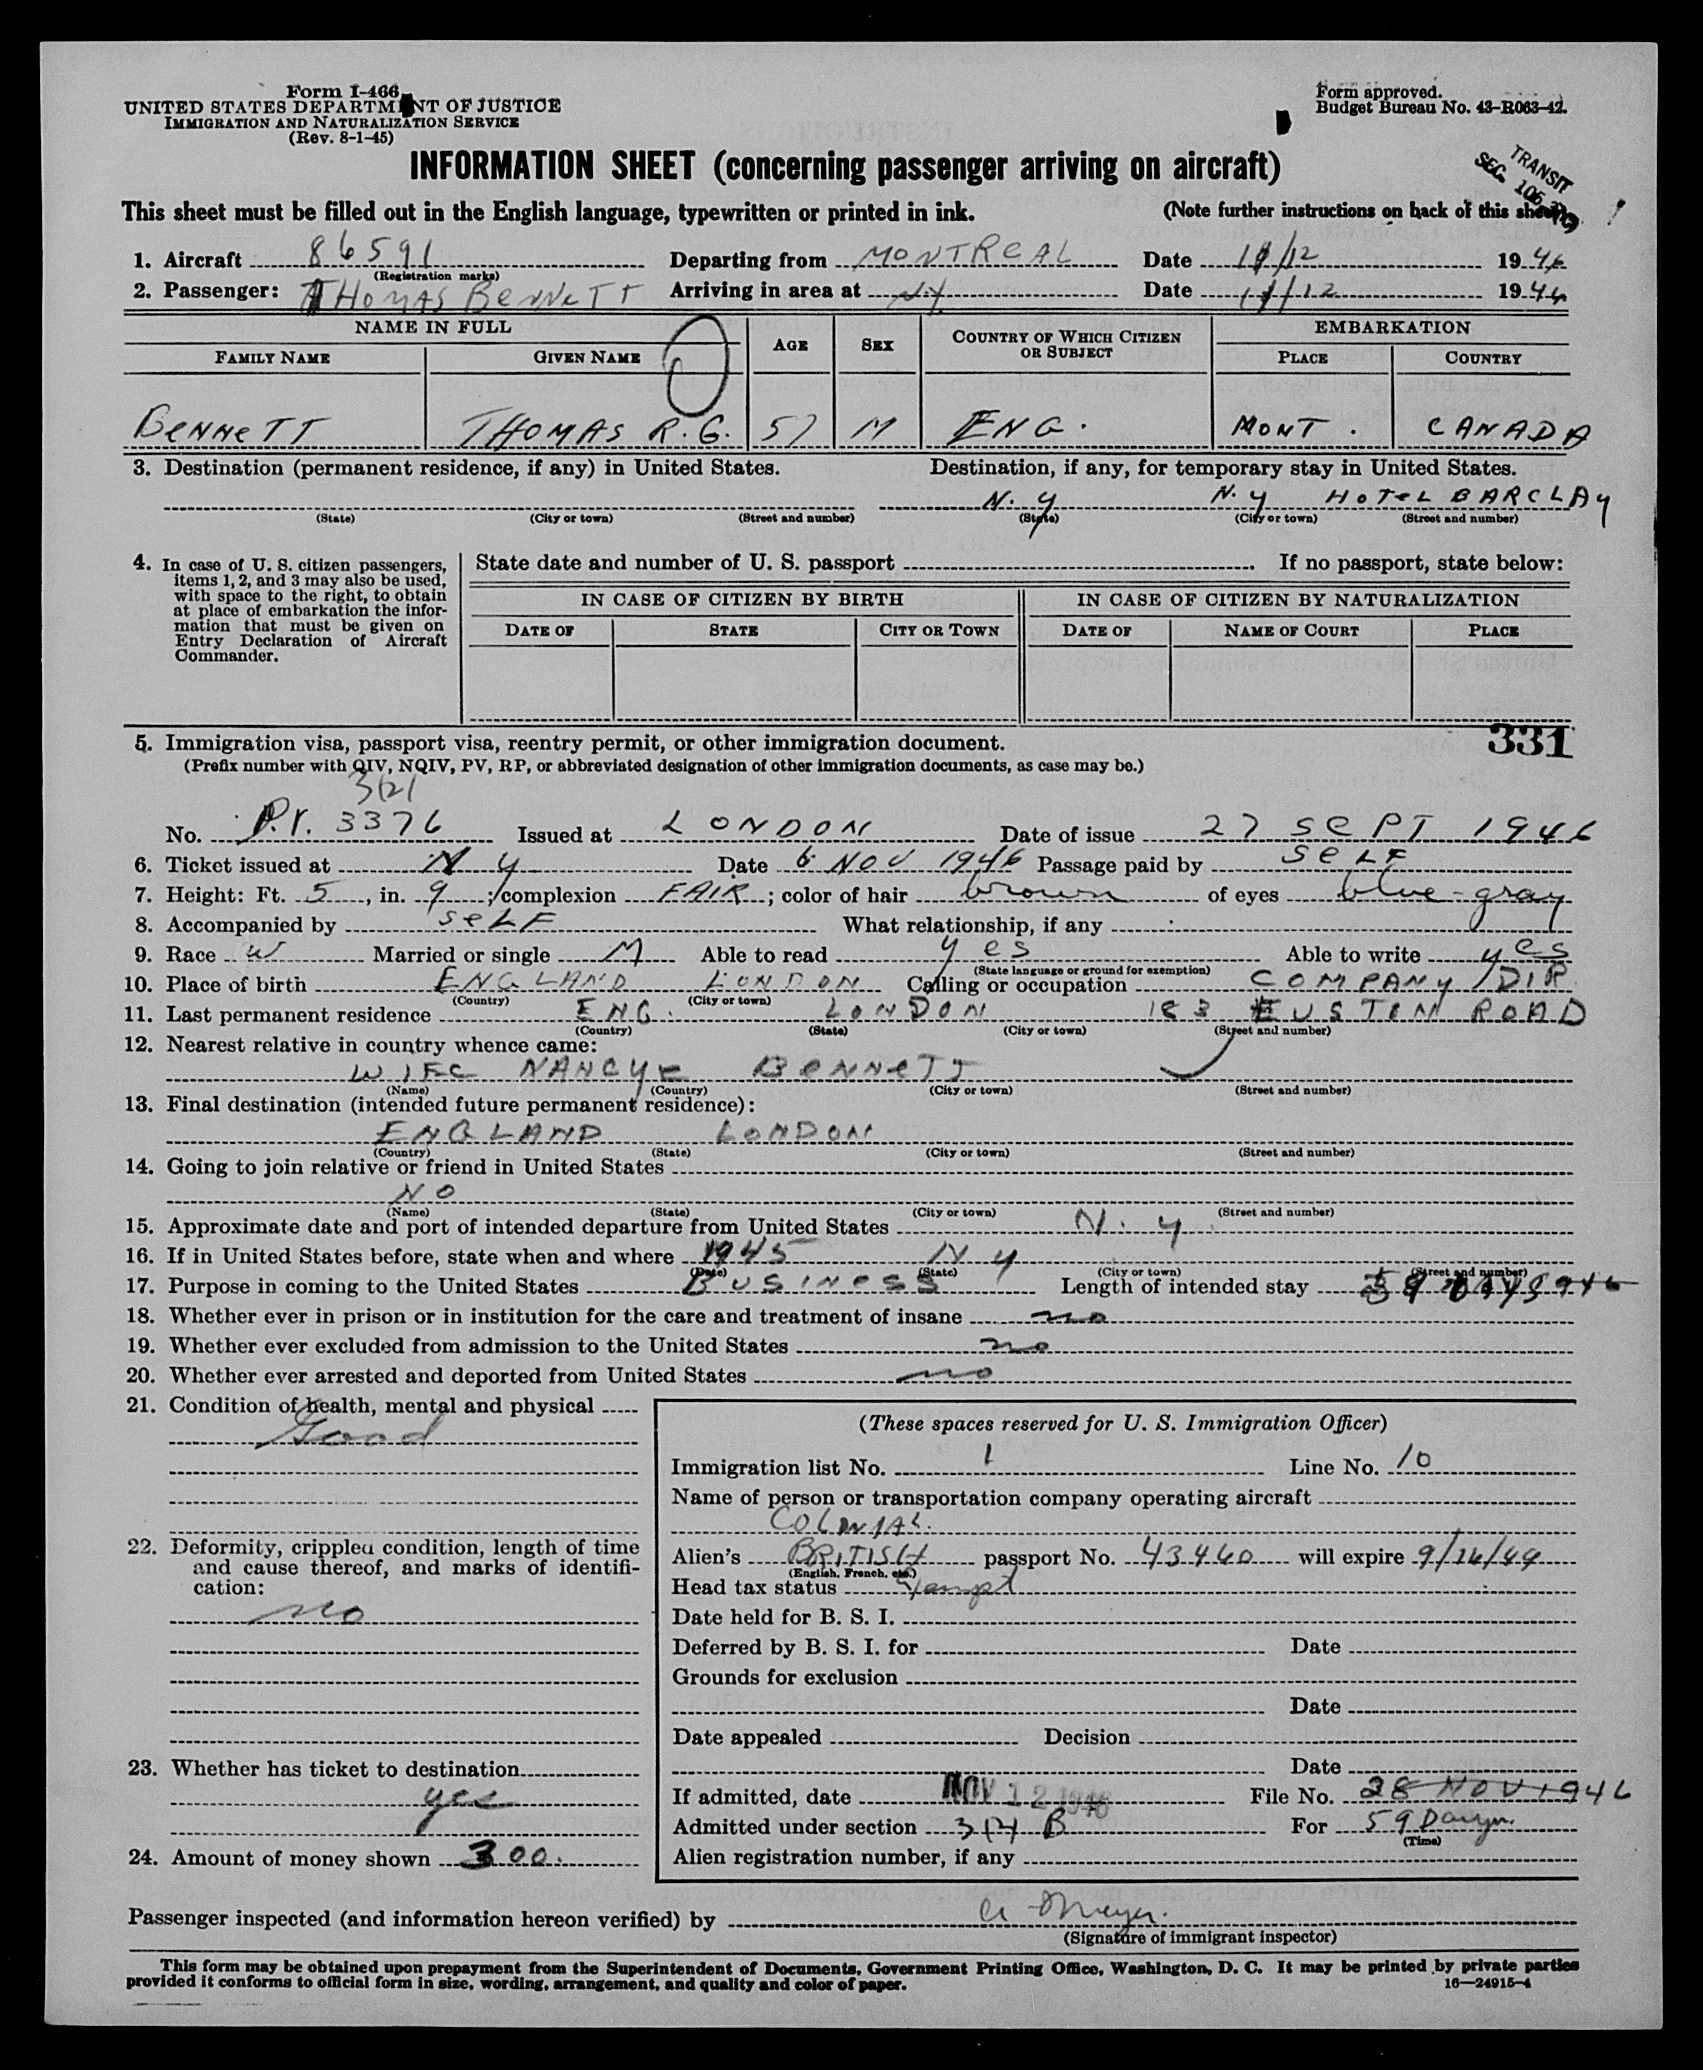 Form I-466
UNITED STATES DEPARTMENT OF JUSTICE
IMMIGRATION AND NATURALIZATION SERVICE
(Rev. 8-1-45)
Form approved.
Budget Bureau No. 43-R063-42.
INFORMATION SHEET (concerning passenger arriving on aircraft)
TRANSIT
SEC.
This sheet must be filled out in the English language, typewritten or printed in ink. (Note further instructions on back of this sheet)
1. Aircraft 86591 Departing from MONTREAL Date 11/12 1946
(Registration marks)
2. Passenger: THOMAS BENNETT Arriving in area at N.Y. Date 11/12 1946
NAME IN FULL AGE SEX COUNTRY OF WHICH CITIZEN OR SUBJECT EMBARKATION
FAMILY NAME GIVEN NAME PLACE COUNTRY
BENNETT THOMAS R.G. 57 M ENG. MONT. CANADA
3. Destination (permanent residence, if any) in United States. Destination, if any, for temporary stay in United States.
N.Y N.Y HOTEL BARCLAY
(State) (City or town) (Street and number) (State) (City or town) (Street and number)
4. In case of U. S. citizen passengers, items 1, 2, and 3 may also be used, with space to the right, to obtain at place of embarkation the information that must be given on Entry Declaration of Aircraft Commander.
State date and number of U. S. passport If no passport, state below:
IN CASE OF CITIZEN BY BIRTH IN CASE OF CITIZEN BY NATURALIZATION
DATE OF STATE CITY OR TOWN DATE OF NAME OF COURT PLACE
331
5. Immigration visa, passport visa, reentry permit, or other immigration document.
(Prefix number with QIV, NQIV, PV, RP, or abbreviated designation of other immigration documents, as case may be.)
No. P.V. 3376 Issued at LONDON Date of issue 27 SEPT 1946
6. Ticket issued at N Y Date 6 NOV 1946 Passage paid by SELF
7. Height: Ft. 5, in. 9; complexion FAIR; color of hair brown of eyes blue-gray
8. Accompanied by SELF What relationship, if any
9. Race W Married or single M Able to read yes Able to write yes
(State language or ground for exemption)
10. Place of birth ENGLAND LONDON Calling or occupation COMPANY DIR
(Country) (City or town)
11. Last permanent residence ENG. LONDON 183 EUSTON ROAD
(Country) (State) (City or town) (Street and number)
12. Nearest relative in country whence came:
WIFE NANCYE BENNETT
(Name) (Country) (City or town) (Street and number)
13. Final destination (intended future permanent residence):
ENGLAND LONDON
(Country) (State) (City or town) (Street and number)
14. Going to join relative or friend in United States
NO
(Name) (State) (City or town) (Street and number)
15. Approximate date and port of intended departure from United States N.Y.
16. If in United States before, state when and where 1945 N Y
(Date) (State) (City or town) (Street and number)
17. Purpose in coming to the United States BUSINESS Length of intended stay 59 DAYS
18. Whether ever in prison or in institution for the care and treatment of insane no
19. Whether ever excluded from admission to the United States no
20. Whether ever arrested and deported from United States no
21. Condition of health, mental and physical
Good
22. Deformity, crippled condition, length of time and cause thereof, and marks of identification:
no
23. Whether has ticket to destination
yes
24. Amount of money shown 300.
(These spaces reserved for U. S. Immigration Officer)
Immigration list No. 1 Line No. 10
Name of person or transportation company operating aircraft
COLONIAL.
Alien's BRITISH passport No. 43460 will expire 9/26/49
(English, French, etc.)
Head tax status Exempt
Date held for B. S. I.
Deferred by B. S. I. for Date
Grounds for exclusion
Date
Date appealed Decision
Date
If admitted, date NOV 12 1946 File No. 28 NOV 1946
Admitted under section 3(2) B For 59 Days.
(Time)
Alien registration number, if any
Passenger inspected (and information hereon verified) by
(Signature of immigrant inspector)
This form may be obtained upon prepayment from the Superintendent of Documents, Government Printing Office, Washington, D. C. It may be printed by private parties
provided it conforms to official form in size, wording, arrangement, and quality and color of paper.
16—24915-4